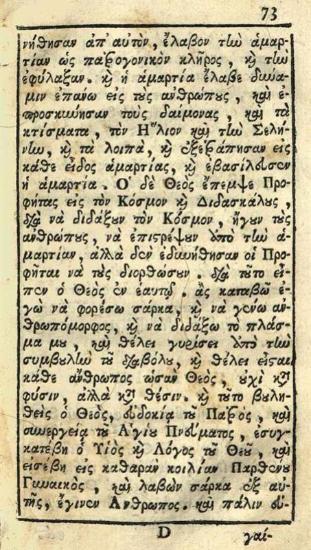 73
νήθησαν ἀπ' αὐτὸν, ἔλαβον τὴν ἁμαρ-
τίαν ὡς παρογονικὸν κλῆρος, κỳ τὴν
ἐφύλαξαν. κỳ ἡ ἁμαρτία ἔλαβε δύνα-
μιν ἐπάνω εἰς τοὺς ἀνθρώπους, καὶ ἐ-
προσκυνησαν τοὺς δαίμονας, καὶ τὰ
κτίσματα, τὸν Ἥλιον καὶ τὴν Σελή-
νην, κỳ τὰ λοιπὰ, κỳ ἐξεράπησαν εἰς
κάθε εἶδος ἁμαρτίας, κỳ ἐβασίλευσεν
ἡ ἁμαρτία. Ὁ δὲ Θεὸς ἔπεμψε Προ-
φήτας εἰς τὸν Κόσμον κỳ Διδασκάλους,
διὰ νὰ διδάξουν τὸν Κόσμον, ἤγουν τοὺς
ἀνθρώπους, νὰ ἐπιστρέψουν ἀπὸ τὴν ἁ-
μαρτίαν, ἀλλὰ δὲν ἐδυνήθησαν οἱ Προ-
φῆται νὰ τοὺς διορθώσουν. διὰ τοῦτο εἶ-
πεν ὁ Θεὸς ἐν ἑαυτῷ. ἂς καταβῶ ἐ-
γὼ νὰ φορέσω σάρκα, κỳ νὰ γένω ἀν-
θρωπόμορφος, κỳ νὰ διδάξω τὸ πλάσ-
μα μου, καὶ θέλει γυρίσει ἀπὸ τὴν
συμβουλὴν τοῦ διαβόλου, κỳ θέλει εἶσται
κάθε ἄνθρωπος ὡσὰν Θεὸς, οὐχὶ κατὰ
φύσιν, ἀλλὰ κατὰ θέσιν. κỳ τοῦτο βουλη-
θεὶς ὁ Θεὸς, εὐδοκίᾳ τοῦ Πατρὸς, καὶ
συνεργείᾳ τοῦ Ἁγίου Πνεύματος, ἐσυγ-
κατέβη ὁ Υἱὸς κỳ Λόγος τοῦ Θεοῦ, καὶ
εἰσέβη εἰς καθαρὰν κοιλίαν Παρθένου
Γυναικὸς, καὶ λαβὼν σάρκα ἐξ αὐ-
τῆς, ἔγινεν Ἄνθρωπος. καὶ πάλιν εὐ-
D γαί-